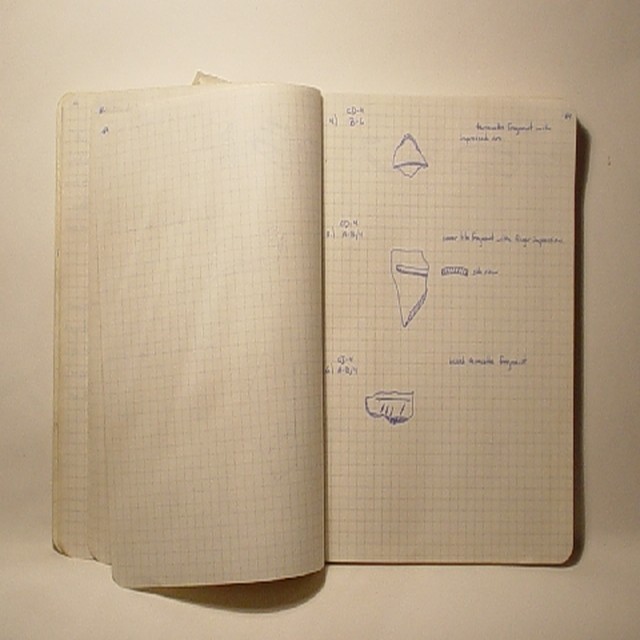 CD-4
4) B-6
terracotta fragment with
impressed arc
CD-4
5.) A-B/4
cover tile fragment with finger impression
side view
CD-4
6.) A-B/4
terracotta fragment